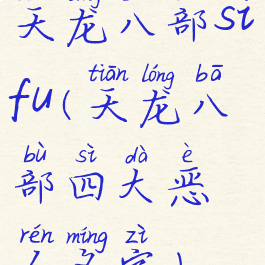 天龙八部si
tiān lóng bā
fu(天龙八
bù sì dà è
部四大恶
rén míng zì
人名字)